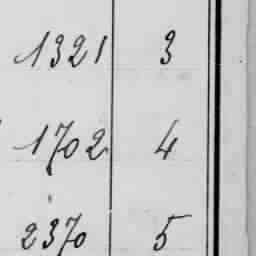 1321 3
1702 4
2370 5